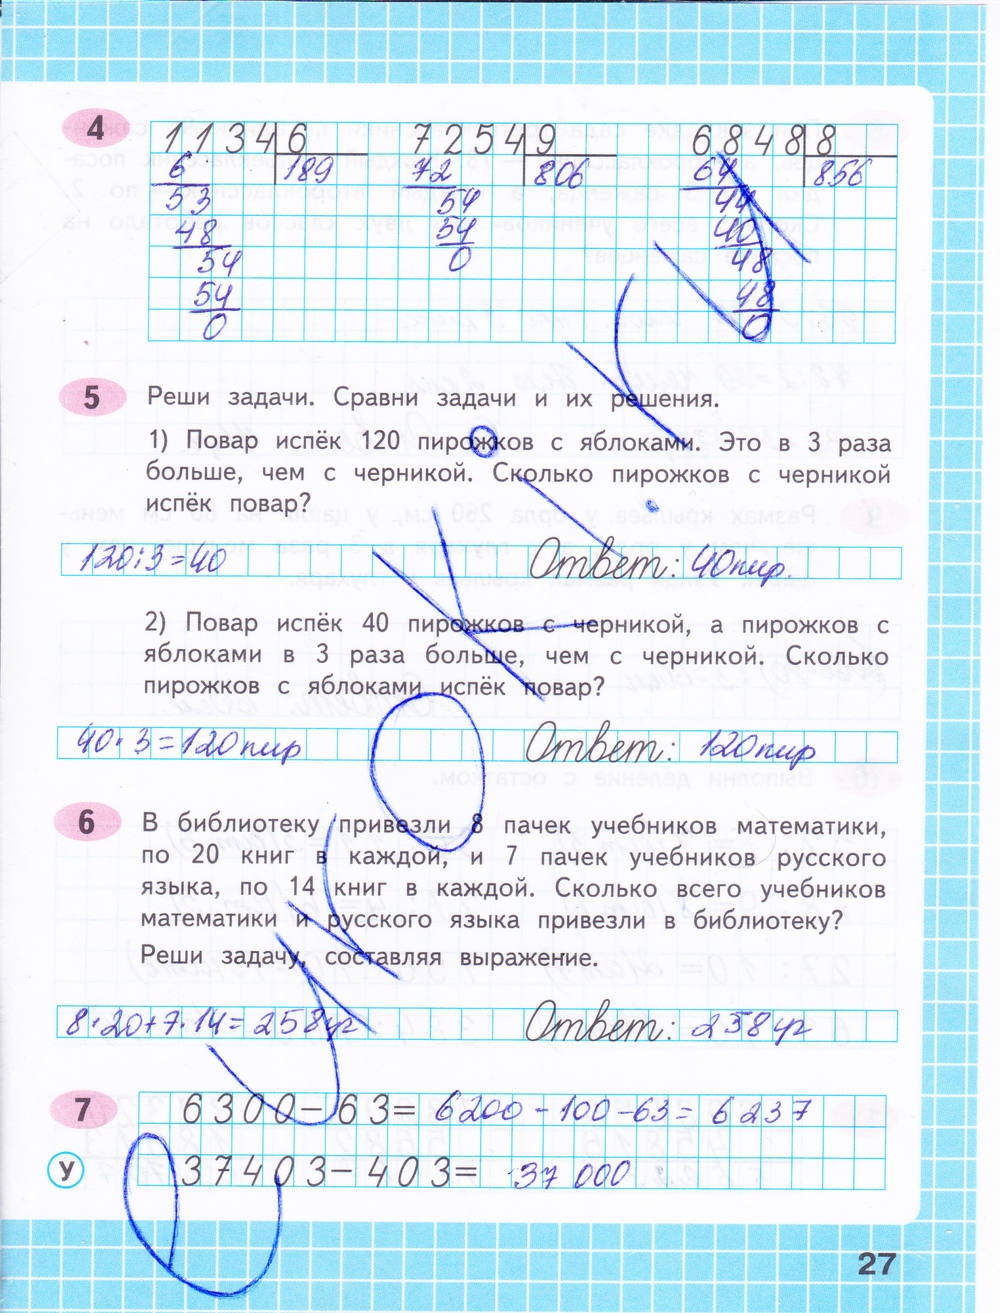 4
11346 72549 68488
6 189 72 806 64 856
53 54 44
48 54 40
54 0 48
54 48
0 0
5 Реши задачи. Сравни задачи и их решения.
1) Повар испёк 120 пирожков с яблоками. Это в 3 раза
больше, чем с черникой. Сколько пирожков с черникой
испёк повар?
120:3=40 Ответ: 40пир.
2) Повар испёк 40 пирожков с черникой, а пирожков с
яблоками в 3 раза больше, чем с черникой. Сколько
пирожков с яблоками испёк повар?
40·3=120пир Ответ: 120пир
6 В библиотеку привезли 8 пачек учебников математики,
по 20 книг в каждой, и 7 пачек учебников русского
языка, по 14 книг в каждой. Сколько всего учебников
математики и русского языка привезли в библиотеку?
Реши задачу, составляя выражение.
8·20+7·14=258уч Ответ: 258уч
7 6300-63= 6200-100-63=6237
У 37403-403= 37000
27